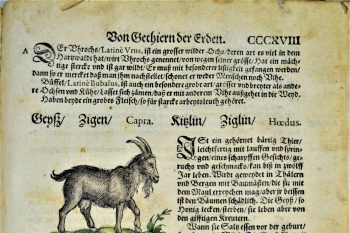 Von Gethiern der Erden. CCCXVIII
A
DEr Vhrochs/Latinè Vrus, ist ein grosser wilder Ochs/deren art es viel in dem
Hartzwalde hat/wirt Vhrochs genennet/von wegen seiner grösse/Hat ein mäch-
tige stercke und ist gar wild/Er muß mit besonderer listigkeit gefangen werden/
dann so er mercket daß man ihm nachstellet/schonet er weder Menschen noch Vihe.
Büffel/Latinè Bubalus, ist auch ein besondere grobe art/grösser und breyter als ande-
re Ochsen und Kühe/Lasset sich zämen/daß er mit anderem Vihe außgehet in die Weyd.
Haben beyde ein grobes Fleisch/so für starcke arbeytsleuth gehöret.
Geyß/ Zigen/ Capra. Kitzlin/ Ziglin/ Hœdus.
IST ein gehörnet bärtig Thier/
leichtfertig mit lauffen und sprin-
gen/eines scharpffen Gesichts/ge-
ruchs und geschmacks/kan biß in zwölff
Jar leben. Wird geweydet in Thälern
und Bergen mit Baumästen/die sie mit
dem Maul erzopchen mag/aber jr beissen
ist den Bäumen schädlich. Die Geyß/so
Honig lecken/sterben/sie leben aber von
den gifftigen Kreutern.
Wann sie Saltz essen vor der geburt/